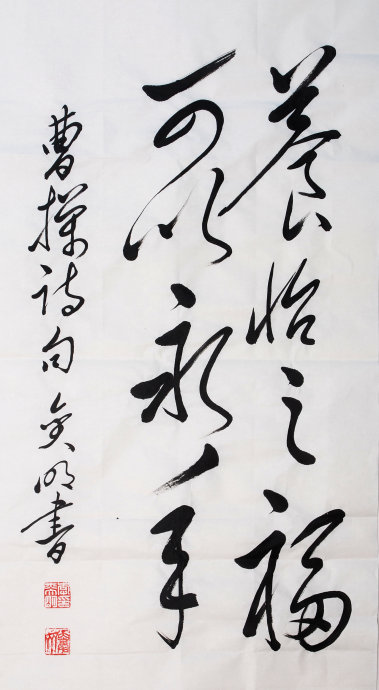 養怡之福
可以永年
曹操诗句奂明書